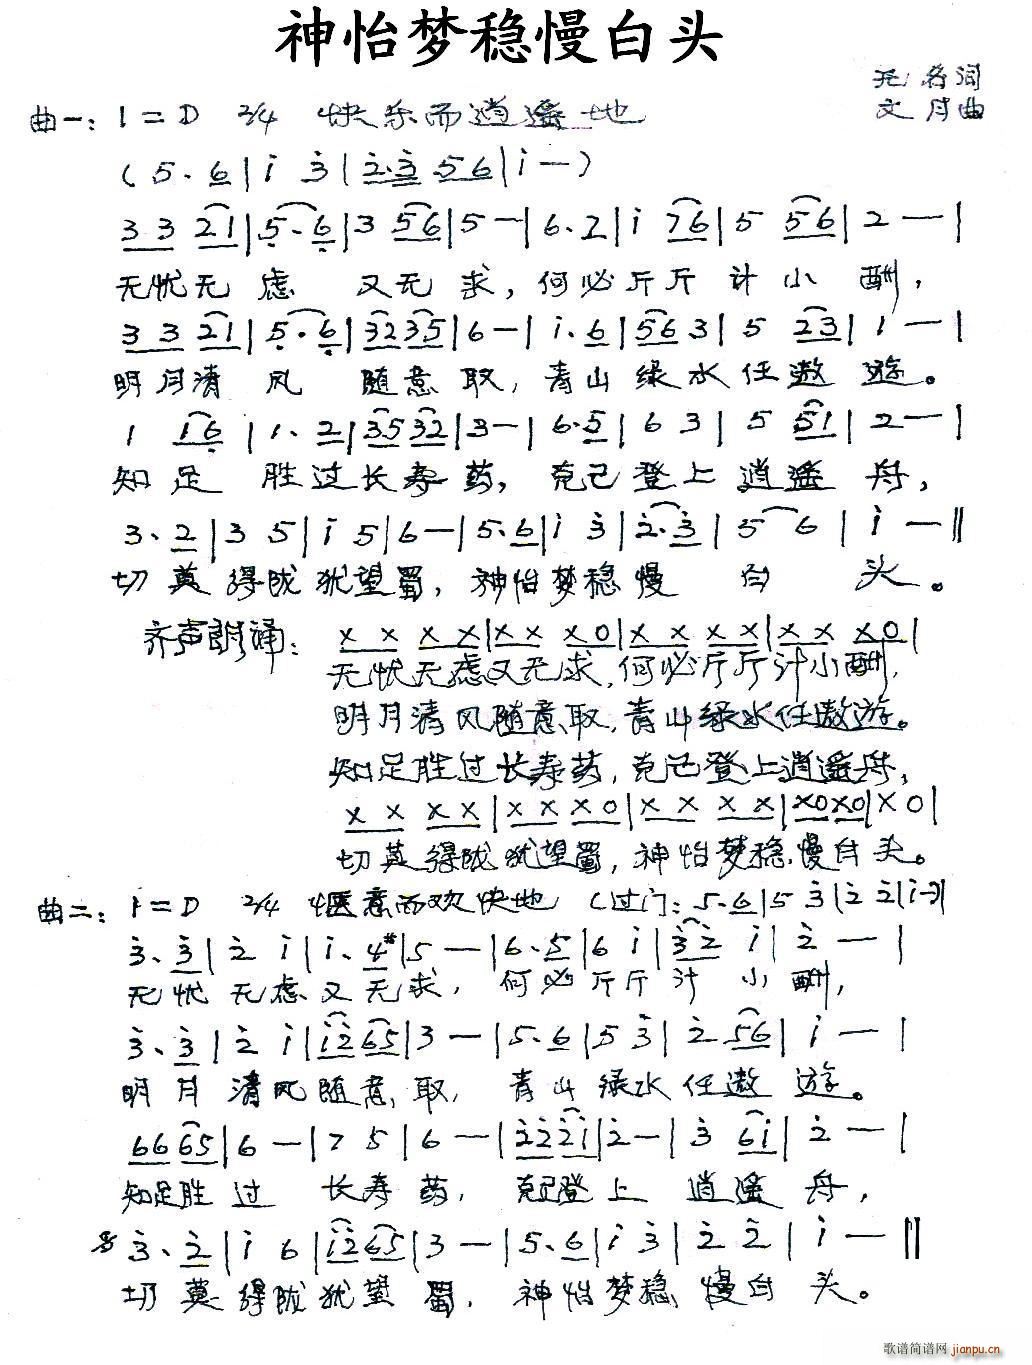 神怡梦稳慢白头
无名词
文月曲
曲一: 1=D 2/4 快乐而逍遥地
(5. 6|i 3|2. 3 5 6|i —)
3 3 2 1|5. 6|3 5 6|5 —|6. 2|i 7 6|5 5 6|2 —|
无忧无虑 又无求, 何必斤斤计小酬,
3 3 2 1|5. 6|3 2 3 5|6 —|i. 6|5 6 3|5 2 3|1 —|
明月清风 随意取, 青山绿水任遨遊。
1 1 6|1. 2|3 5 3 2|3 —|6. 5|6 3|5 5 1|2 —|
知足 胜过长寿药, 克己登上逍遥舟,
3. 2|3 5|i 5|6 —|5. 6|i 3|2. 3|5 6|i —‖
切莫得陇犹望蜀, 神怡梦稳慢 白 头。
齐声朗诵: X X X X|X X X 0|X X X X|X X X 0|
无忧无虑又无求, 何必斤斤计小酬,
明月清风随意取, 青山绿水任遨遊。
知足胜过长寿药, 克己登上逍遥舟,
X X X X|X X X 0|X X X X|X0 X0|X 0|
切莫得陇犹望蜀, 神怡梦稳慢白头。
曲二: 1=D 2/4 惬意而欢快地 (过门: 5. 6|5 3|2 2|i —)|
3. 3|2 i|i. 4#|5 —|6. 5|6 i|3 2 i|2 —|
无忧无虑又无求, 何必斤斤计小酬,
3. 3|2 i|i 2 6 5|3 —|5. 6|5 3|2 5 6|i —|
明月清风随意取, 青山绿水任遨遊。
6 6 6 5|6 —|7 5|6 —|2 2 2 i|2 —|3 6 i|2 —|
知足胜过 长寿药, 克己登上 逍遥舟,
3. 2|i 6|i 2 6 5|3 —|5. 6|i 3|2 2|i —‖
切莫得陇犹望蜀, 神怡梦稳慢白头。
歌谱简谱网 jianpu.cn